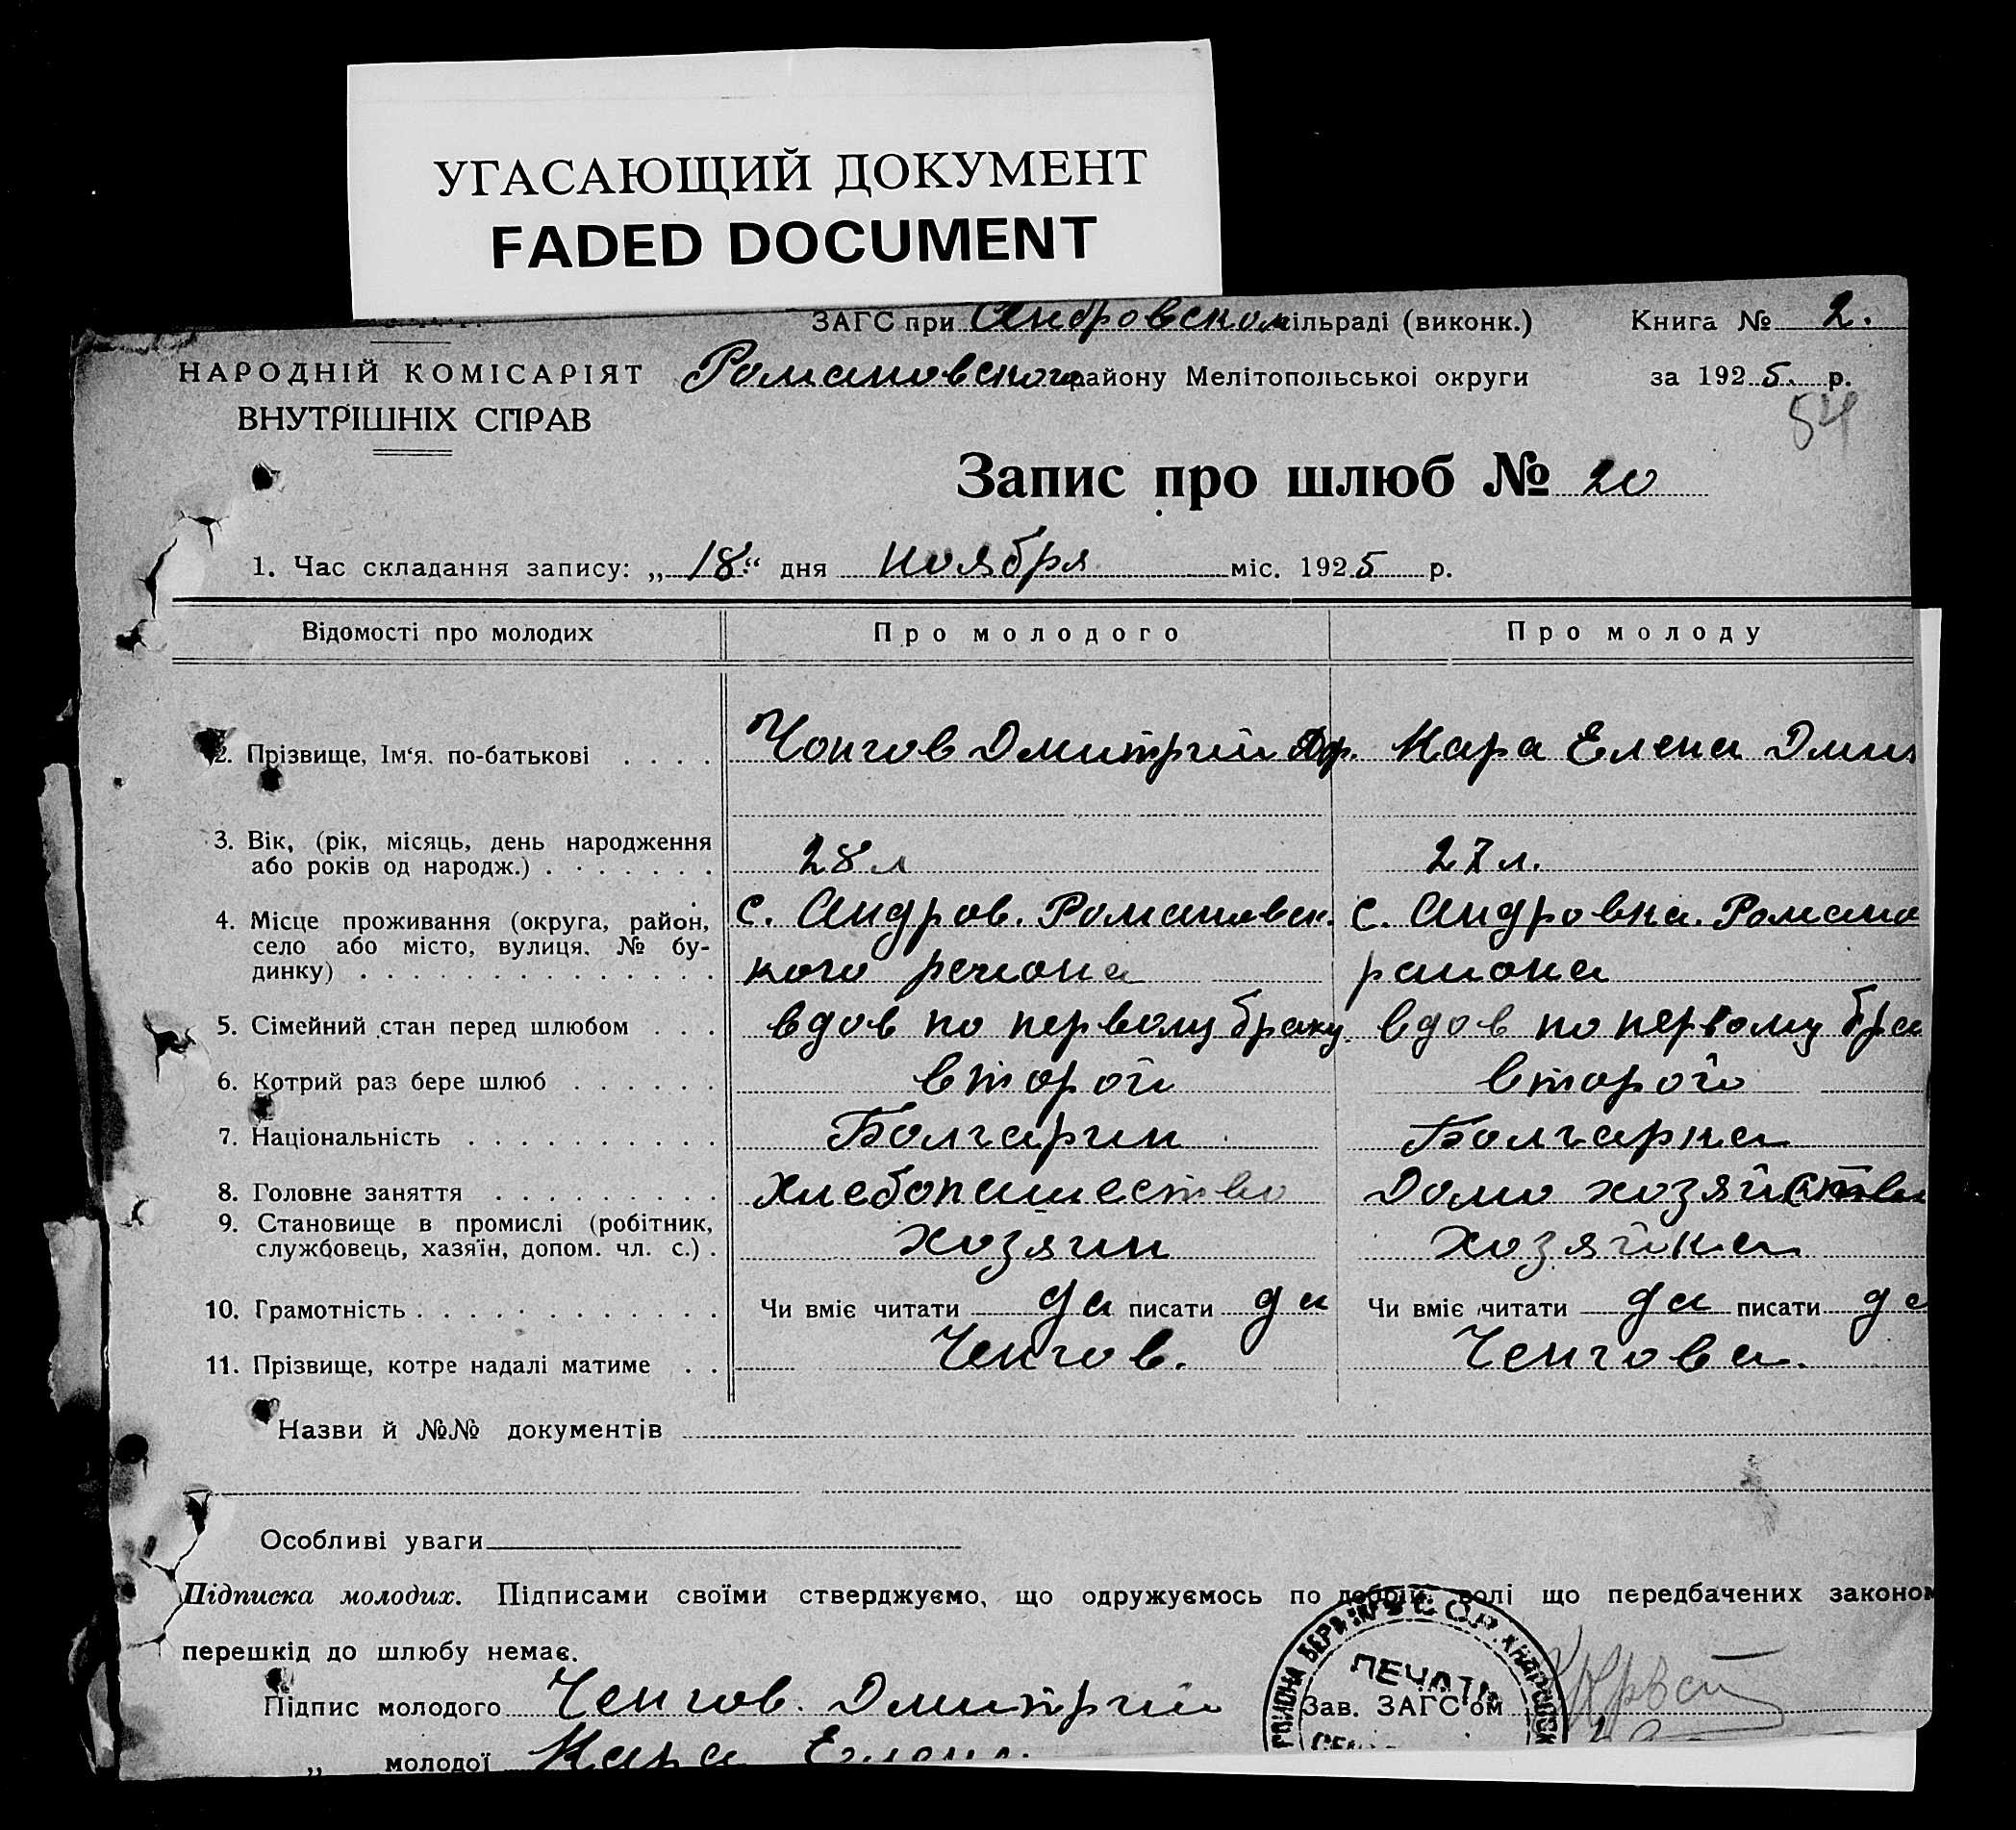 УГАСАЮЩИЙ ДОКУМЕНТ
FADED DOCUMENT
ЗАГС при Андровском сільраді (виконк.) Книга № 2.
НАРОДНІЙ КОМІСАРІЯТ Романовского району Мелітопольської округи за 1925 р.
ВНУТРІШНІХ СПРАВ
54
Запис про шлюб № 20
1. Час складання запису: „18“ дня ноября міс. 1925 р.
Відомості про молодих Про молодого Про молоду
2. Прізвище, Ім‘я, по-батькові Ченгов Дмитрий Кара Елена Дми
3. Вік, (рік, місяць, день народження
або років од народж.) 28 л 27 л.
4. Місце проживання (округа, район, с. Андров. Романовск. с. Андровка. Романо
село або місто, вулиця, № бу-
динку) кого района района
5. Сімейний стан перед шлюбом вдов по первому браку. вдов по первому бра
6. Котрий раз бере шлюб второй второй
7. Національність Болгарин Болгарка
8. Головне заняття Хлебопашество Домохозяйства
9. Становище в промислі (робітник,
службовець, хазяїн, допом. чл. с.) Хозяин Хозяйка
10. Грамотність Чи вміє читати да писати да Чи вміє читати да писати да
11. Прізвище, котре надалі матиме Ченгов. Ченгова.
Назви й №№ документів
Особливі уваги
Підписка молодих. Підписами своїми стверджуємо, що одружуємось по добрій волі що передбачених законом
перешкід до шлюбу немає.
Підпис молодого Ченгов Дмитрий Зав. ЗАГС'ом
„ молодої Кара Елена
ПЕЧАТЬ